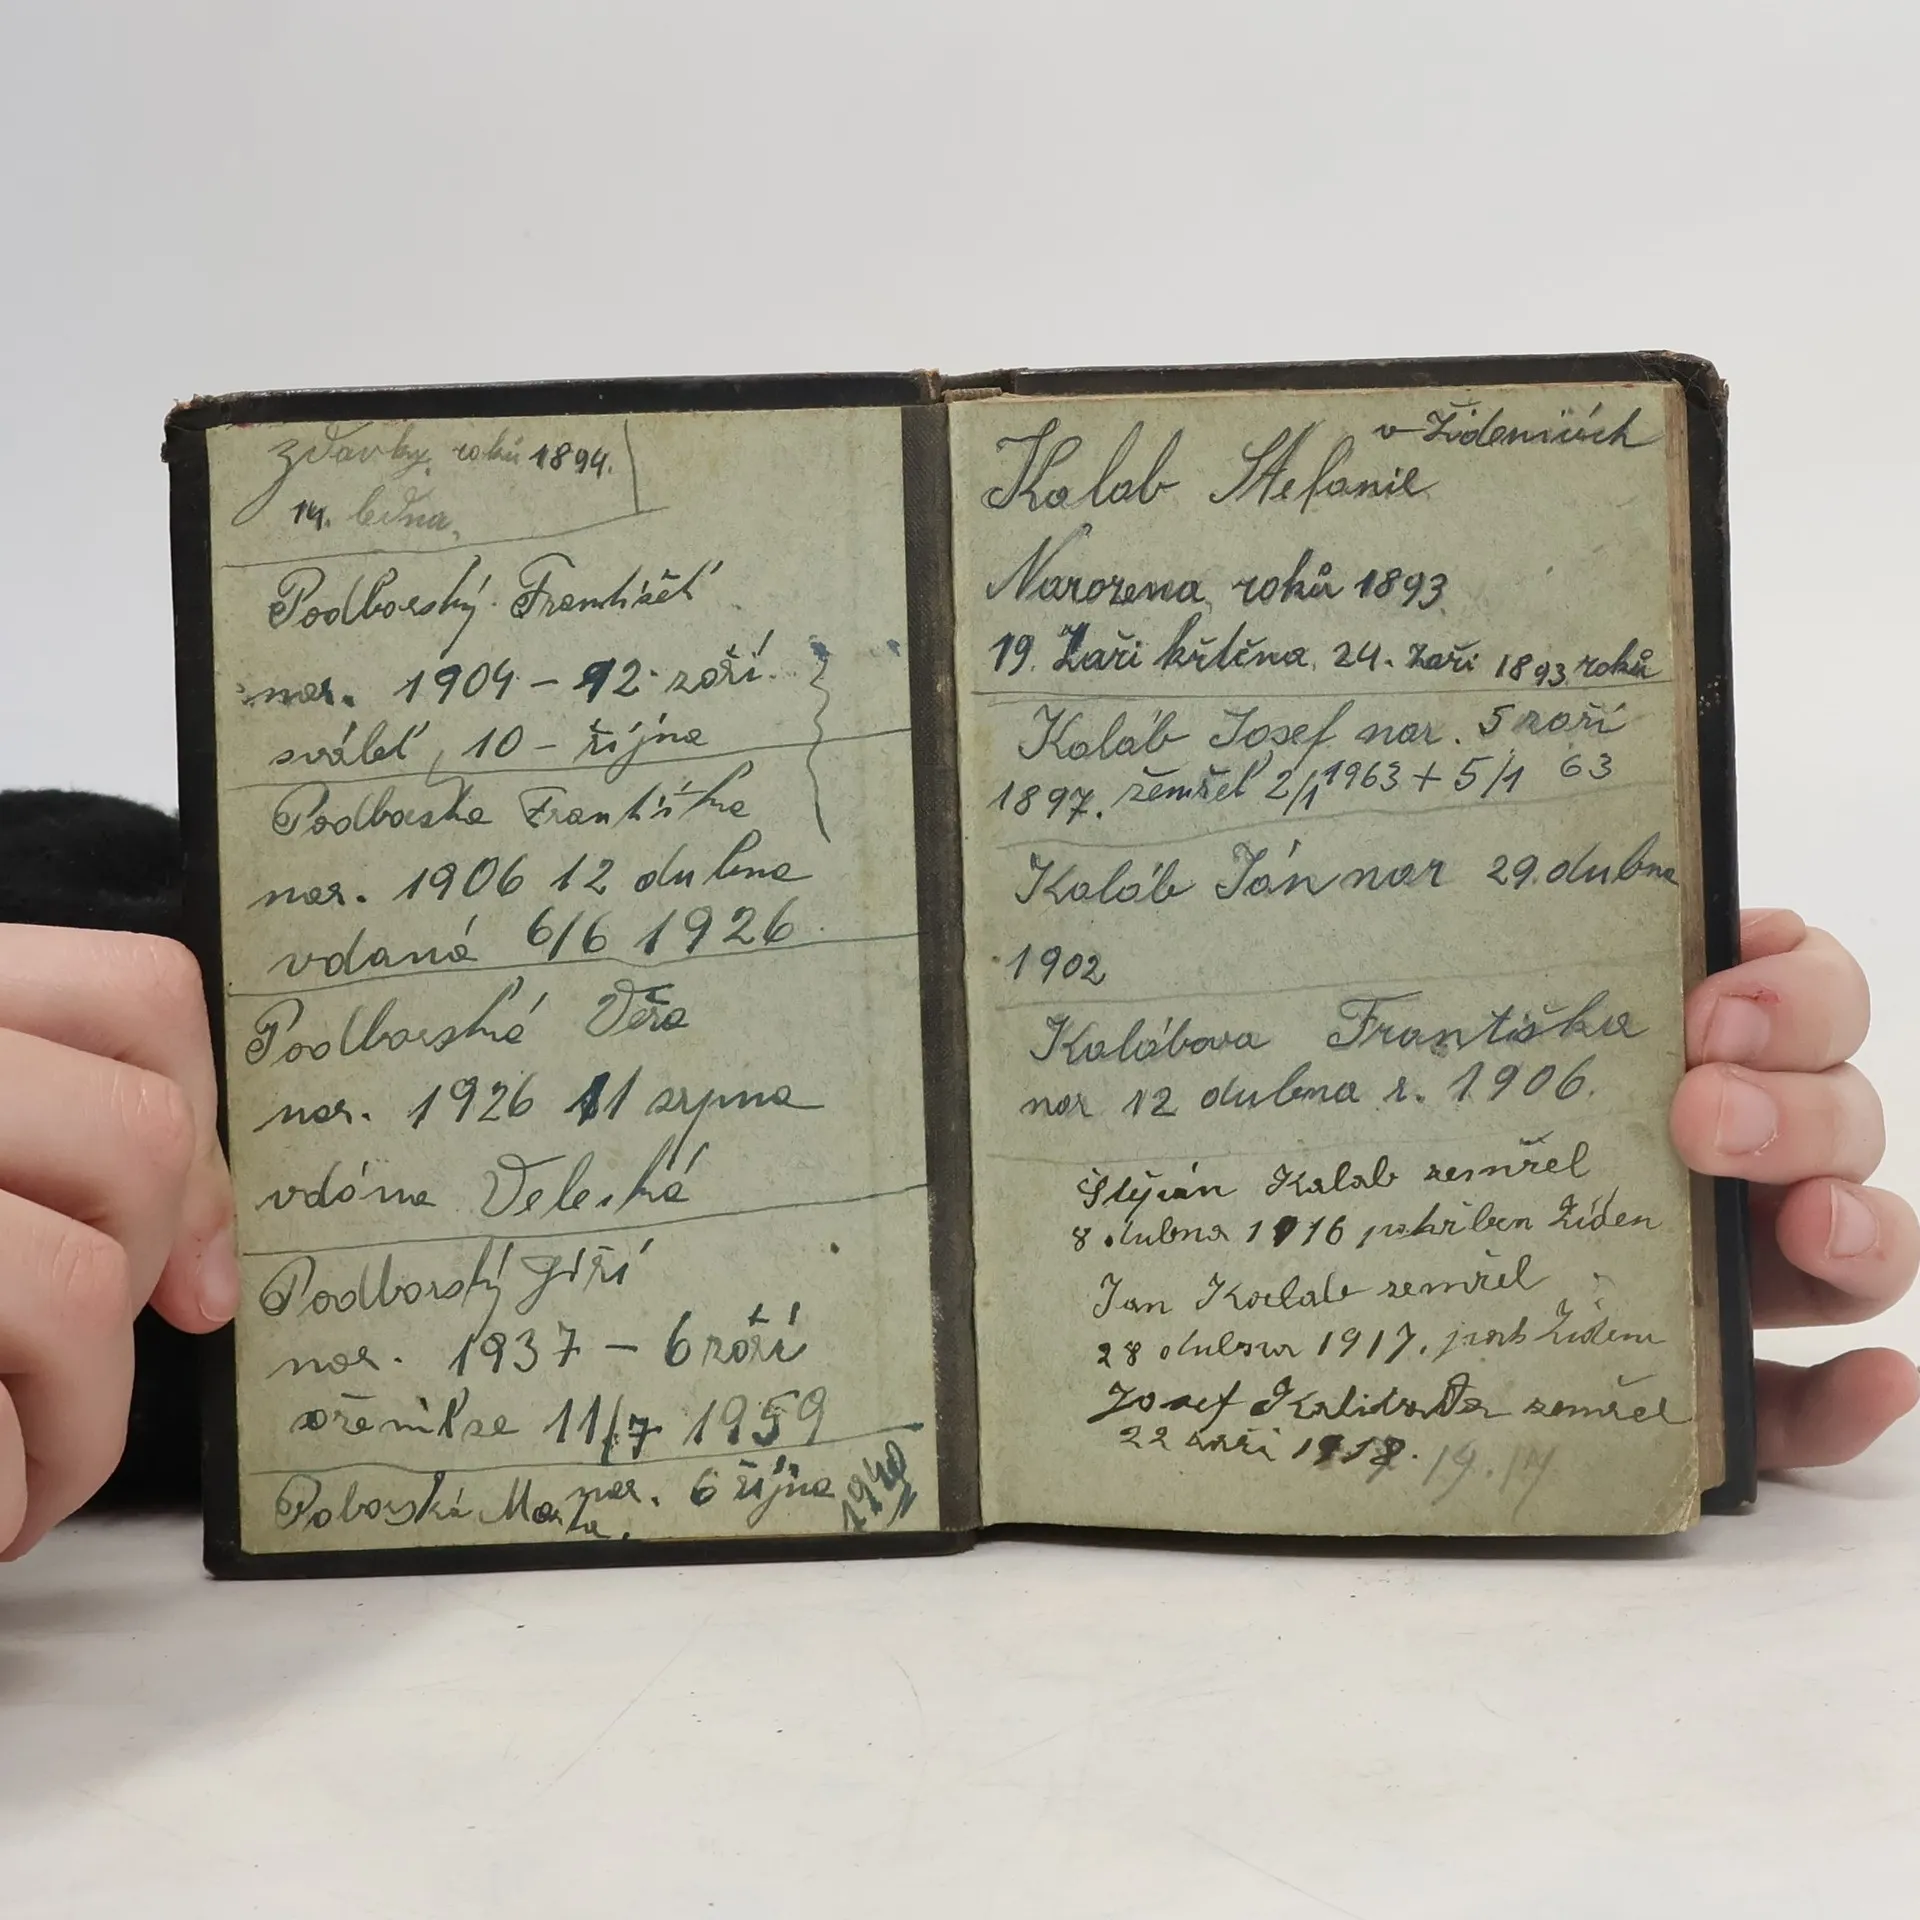 zdavky roků 1894.
14. ledna.
Podborský František
nar. 1904 – 12 zoří.
sváteť, 10 – října
Podborska Františka
nar. 1906 12 dubna
vdaná 6/6 1926.
Podborská Věra
nar. 1926 11 srpna
vdóna Veleská
Podborský Jiří
nar. 1937 – 6 zóří
oženil se 11/7 1959
Poborská Marta. nar. 6 října 1940
v Židenicích
Kalab Stefanie
Narozena roků 1893
19. Zaři křtěna 24. Zaři 1893 roků
Kaláb Josef nar. 5 zoří
1897. žemřel 2/1 1963 + 5/1 63
Kaláb Ján nar 29. dubna
1902
Kalábova Františka
nar 12 dubna r. 1906.
Kalab zemřel
8 dubna 1916 pohřben Židen
Jan Kalab zemřel
28 dubna 1917. poch Židen
Josef zemřel
22 zaři 19.17